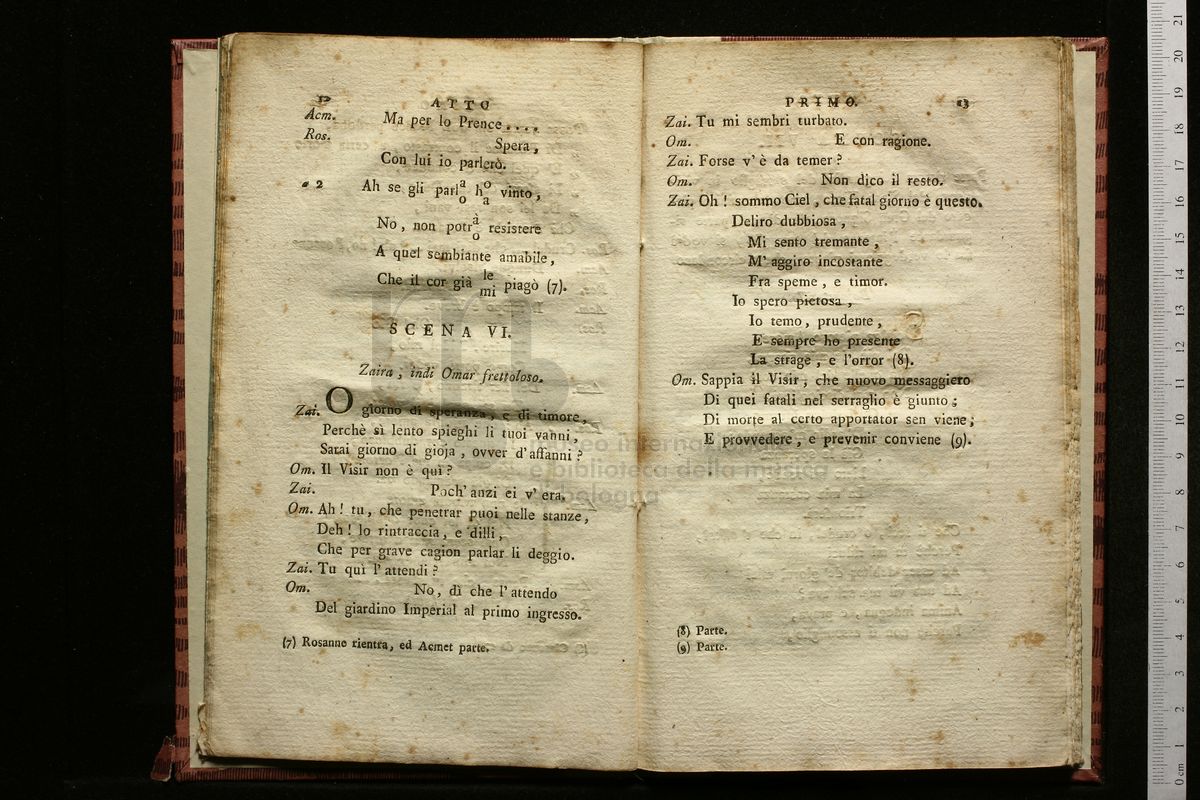 12
ATTO
Acm. Ma per lo Prence....
Ros. Spera,
Con lui io parlerò.
a 2 Ah se gli parlao hoa vinto,
No, non potràò resistere
A quel sembiante amabile,
Che il cor già lemi piagò (7).
SCENA VI.
Zaira, indi Omar frettoloso.
Zai. O giorno di speranza, e di timore,
Perchè sì lento spieghi li tuoi vanni,
Sarai giorno di gioja, ovver d'affanni?
Om. Il Visir non è quì?
Zai. Poch'anzi ei v'era.
Om. Ah! tu, che penetrar puoi nelle stanze,
Deh! lo rintraccia, e dilli,
Che per grave cagion parlar li deggio.
Zai. Tu quì l'attendi?
Om. No, dì che l'attendo
Del giardino Imperial al primo ingresso.
(7) Rosanne rientra, ed Acmet parte.
PRIMO. 13
Zai. Tu mi sembri turbato.
Om. E con ragione.
Zai. Forse v'è da temer?
Om. Non dico il resto.
Zai. Oh! sommo Ciel, che fatal giorno è questo.
Deliro dubbiosa,
Mi sento tremante,
M'aggiro incostante
Fra speme, e timor.
Io spero pietosa,
Io temo, prudente,
E sempre ho presente
La strage, e l'orror (8).
Om. Sappia il Visir, che nuovo messaggiero
Di quei fatali nel serraglio è giunto;
Di morte al certo apportator sen viene;
E provvedere, e prevenir conviene (9).
(8) Parte.
(9) Parte.
museo internazionale
e biblioteca della musica
di bologna